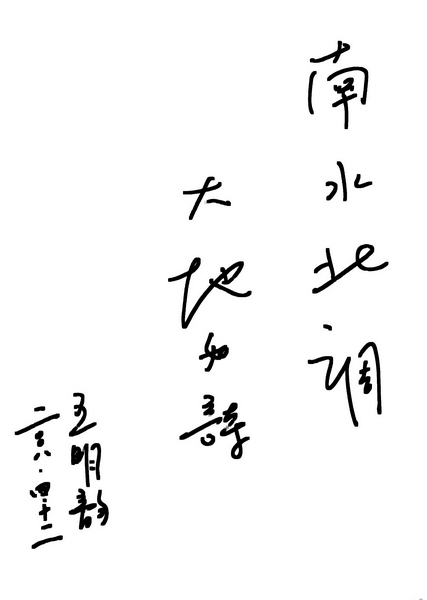 南水北调
大地如詩
王明韵
二〇〇八·四·十二